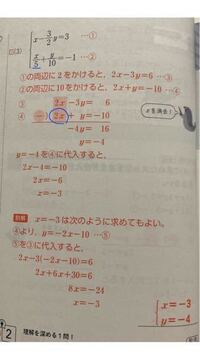 (3) { x－3/2 y＝3 …①
x/5＋y/10＝－1 …②
①の両辺に2をかけると、2x－3y＝6 …③
②の両辺に10をかけると、2x＋y＝－10 …④
③ 2x－3y＝ 6
④ －) 2x＋ y＝－10
xを消去！
－4y＝ 16
y＝－4
y＝－4を④に代入すると、
2x－4＝－10
2x＝－6
x＝－3
別解 x＝－3は次のように求めてもよい。
④より、y＝－2x－10 …⑤
⑤を③に代入すると、
2x－3(－2x－10)＝6
2x＋6x＋30＝6
8x＝－24
x＝－3
{ x＝－3
y＝－4
2 理解を深める1問！